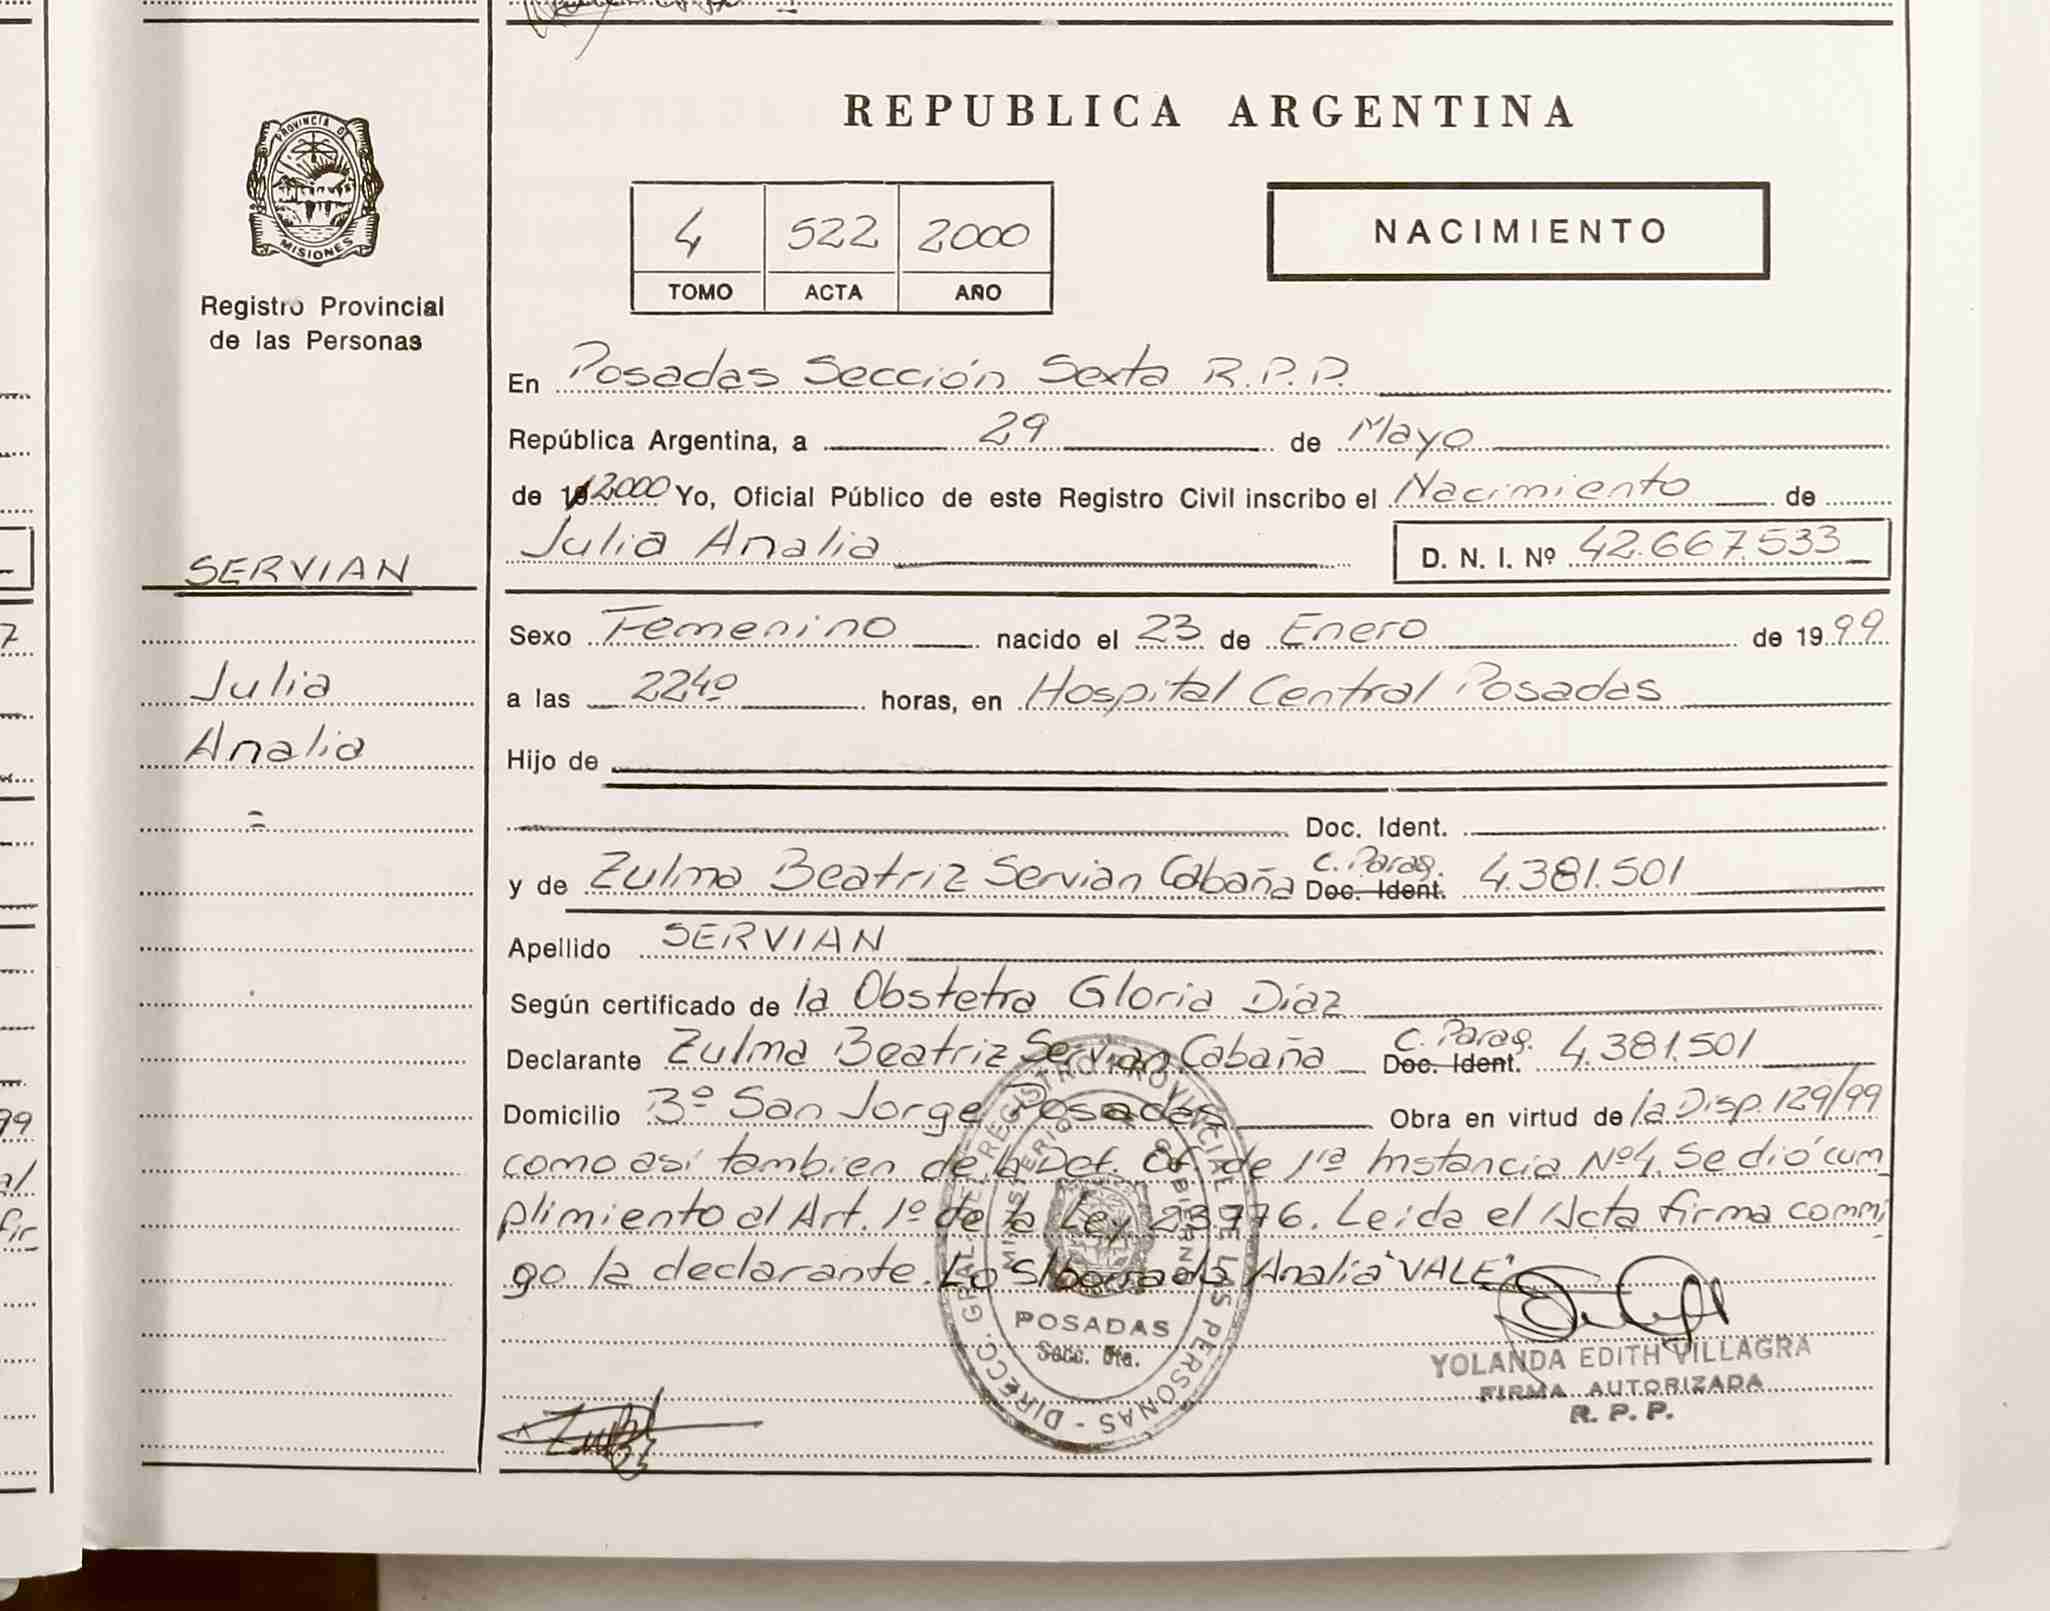 PROVINCIA D
MISIONES
Registro Provincial
de las Personas
SERVIAN
Julia
Analia
REPUBLICA ARGENTINA
4 522 2000
TOMO ACTA AÑO
NACIMIENTO
En Posadas Sección Sexta R.P.P.
República Argentina, a 29 de Mayo
de 19 2000 Yo, Oficial Público de este Registro Civil inscribo el Nacimiento de
Julia Analia D. N. I. Nº 42.667.533
Sexo Femenino nacido el 23 de Enero de 19 99
a las 22 40 horas, en Hospital Central Posadas
Hijo de
Doc. Ident.
y de Zulma Beatriz Servian Cabaña Doc. Ident. C. Parag. 4.381.501
Apellido SERVIAN
Según certificado de la Obstetra Gloria Díaz
Declarante Zulma Beatriz Servian Cabaña Doc. Ident. C. Parag. 4.381.501
Domicilio Bº San Jorge Posadas Obra en virtud de la Disp. 129/99
como así tambien de la Def. Of. de 1ra Instancia Nº4. Se dió cum
plimiento al Art. 1º de la Ley 23.776. Leida el Acta firma conmi
go la declarante. Lo S/borrado Analia "VALE"
DIRECC. GRAL. DEL REGISTRO PROVINCIAL DE LAS PERSONAS
MINISTERIO GOBIERNO
POSADAS
Secc. 6ta.
YOLANDA EDITH VILLAGRA
FIRMA AUTORIZADA
R. P. P.